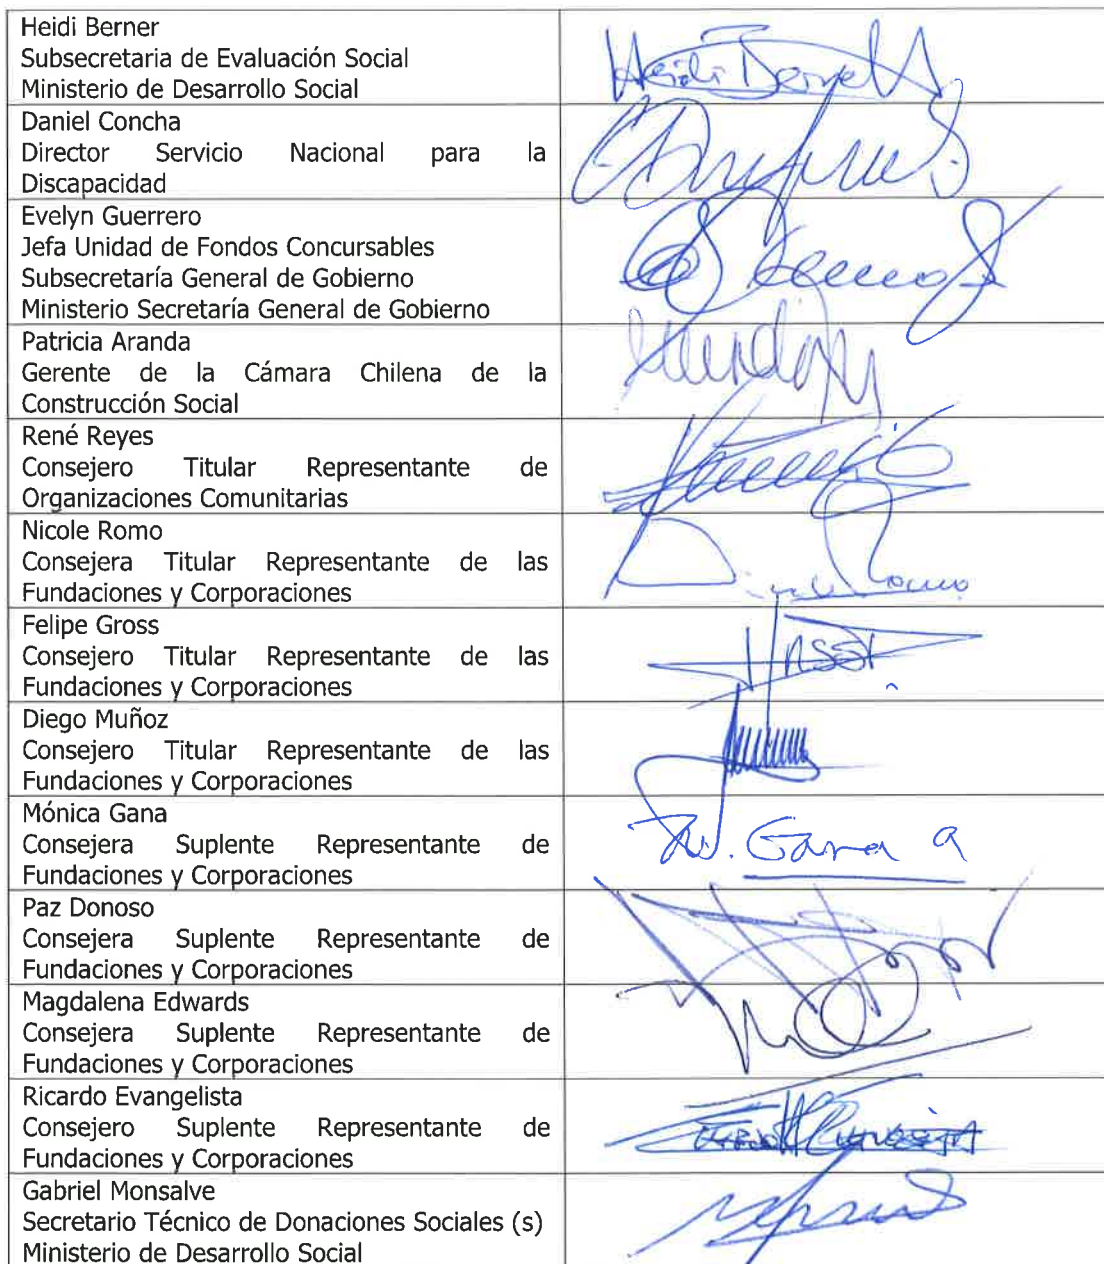 Heidi Berner
Subsecretaria de Evaluación Social
Ministerio de Desarrollo Social
Heidi Berner
Daniel Concha
Director Servicio Nacional para la
Discapacidad
Evelyn Guerrero
Jefa Unidad de Fondos Concursables
Subsecretaría General de Gobierno
Ministerio Secretaría General de Gobierno
Patricia Aranda
Gerente de la Cámara Chilena de la
Construcción Social
René Reyes
Consejero Titular Representante de
Organizaciones Comunitarias
Nicole Romo
Consejera Titular Representante de las
Fundaciones y Corporaciones
Felipe Gross
Consejero Titular Representante de las
Fundaciones y Corporaciones
Diego Muñoz
Consejero Titular Representante de las
Fundaciones y Corporaciones
Mónica Gana
Consejera Suplente Representante de
Fundaciones y Corporaciones
Gana a
Paz Donoso
Consejera Suplente Representante de
Fundaciones y Corporaciones
Magdalena Edwards
Consejera Suplente Representante de
Fundaciones y Corporaciones
Ricardo Evangelista
Consejero Suplente Representante de
Fundaciones y Corporaciones
Gabriel Monsalve
Secretario Técnico de Donaciones Sociales (s)
Ministerio de Desarrollo Social